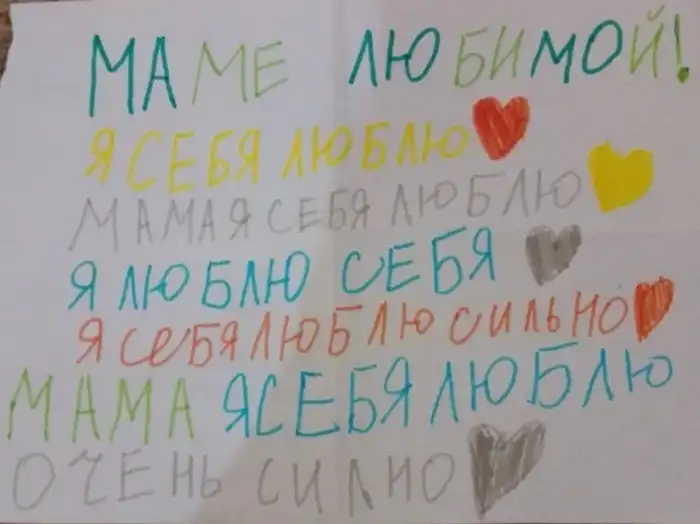 МАМЕ ЛЮБИМОЙ!
Я СЕБЯ ЛЮБЛЮ
МАМА Я СЕБЯ ЛЮБЛЮ
Я ЛЮБЛЮ СЕБЯ
Я СЕБЯ ЛЮБЛЮ СИЛЬНО
МАМА Я СЕБЯ ЛЮБЛЮ
ОЧЕНЬ СИЛНО